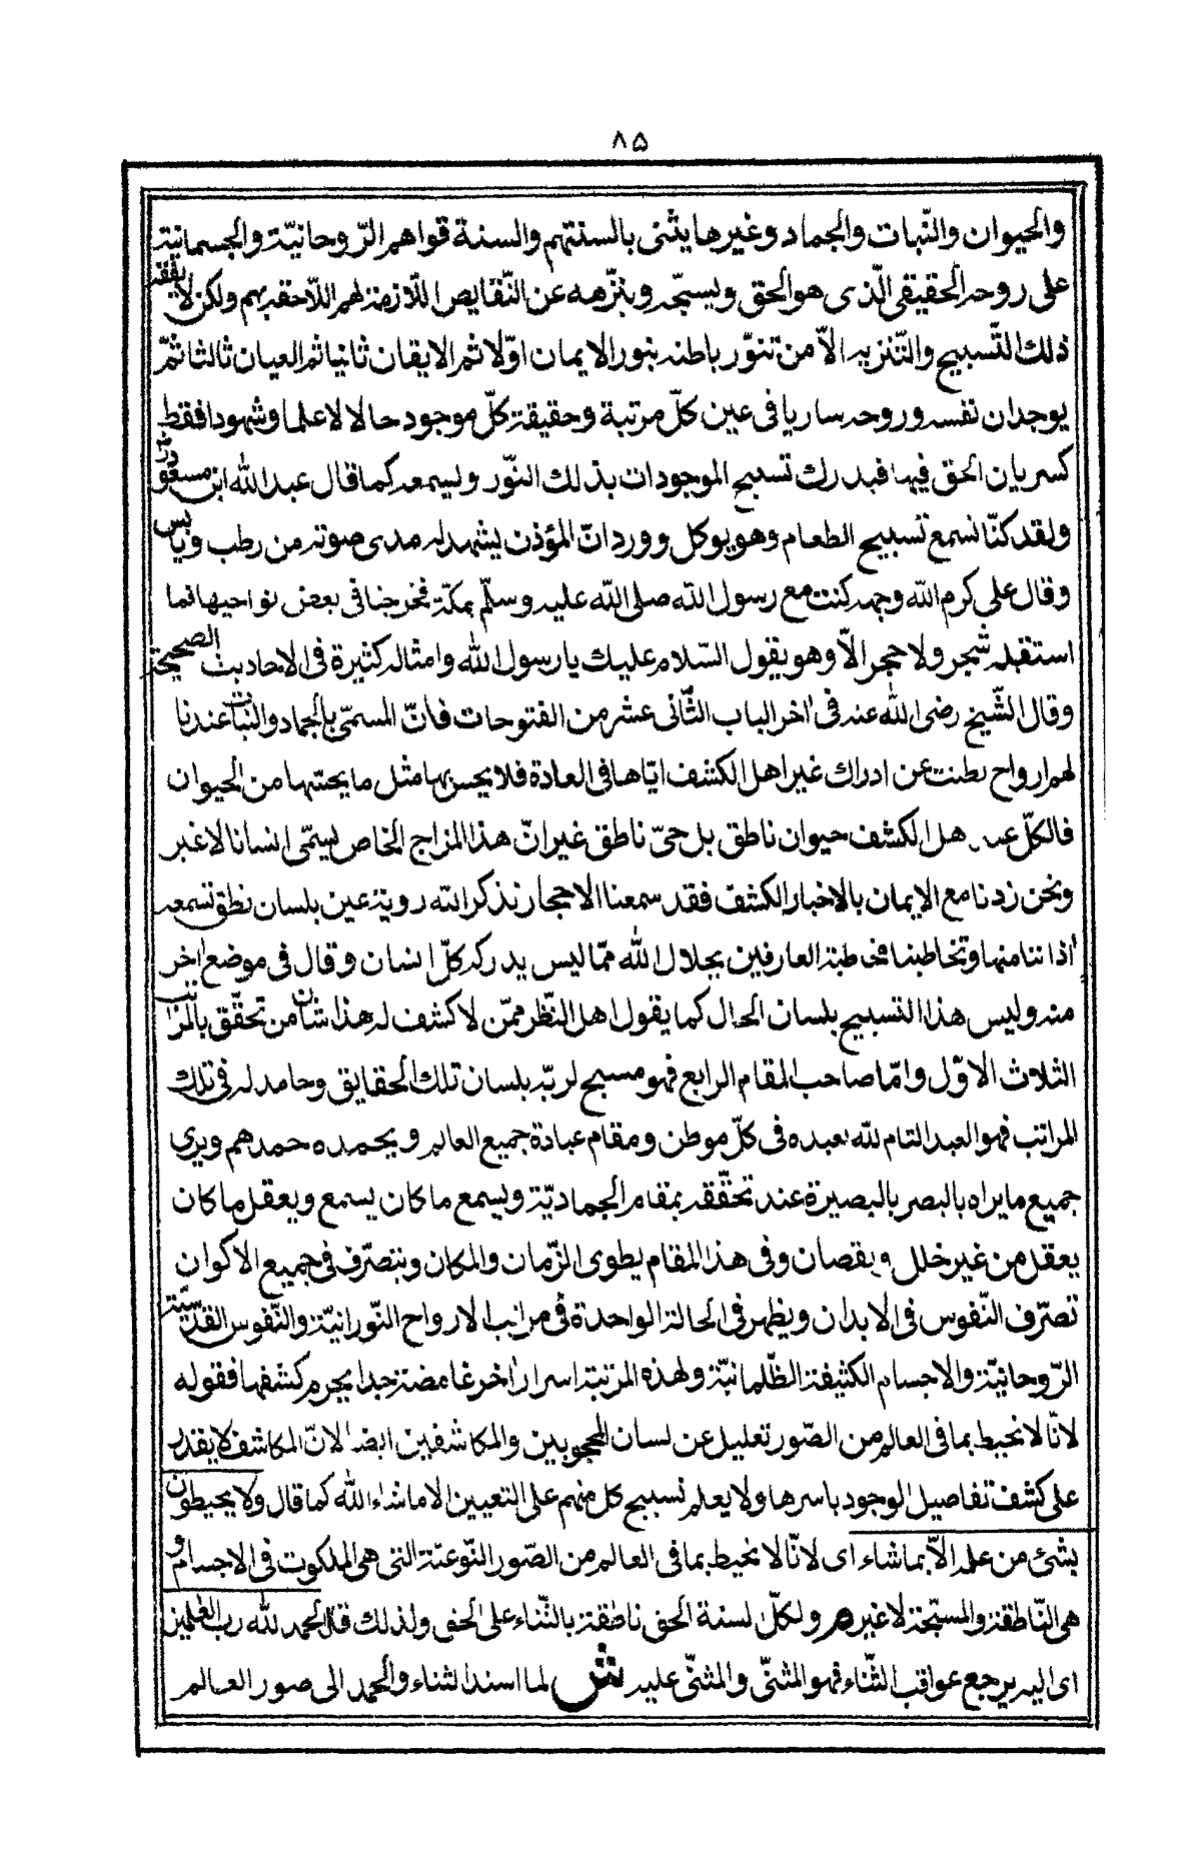 ۸۵
والحيوان والنّبات والجماد وغيرها يثنى بالسنتهم والسنة قواهم الرّوحانيّة والجسمانية
على روحه الحقيقى الّذى هو الحق ويسبّحه وينزّهه عن النّقايص اللّازمة لهم اللّاحقة بهم ولكن لا يفقه
ذلك التّسبيح والتّنزيه الّا من تنوّر باطنه بنور الايمان اوّلا ثم الايقان ثانيا ثم العيان ثالثا ثمّ
يوجدان نفسه وروحه ساريا فى عين كلّ مرتبة وحقيقة كلّ موجود حالا لا علما وشهودا فقط
كسريان الحق فيها فيدرك تسبيح الموجودات بذلك النّور ويسمعه كما قال عبد الله ابن مسعود رض
ولقد كنّا نسمع تسبيح الطعام وهو يوكل وورد انّ المؤذن يشهد له مدى صوته من رطب ويابس
وقال على كرم الله وجهه كنت مع رسول الله صلى الله عليه وسلّم بمكّة فخرجنا فى بعض نواحيها فما
استقبله شجر ولا حجر الّا وهو يقول السّلام عليك يا رسول الله وامثاله كثيرة فى الاحاديث الصحيحة
وقال الشّيخ رضى الله عنه فى اخر الباب الثّانى عشر من الفتوحات فانّ المسمّى بالجماد والنبات عندنا
لهم ارواح بطنت عن ادراك غير اهل الكشف ايّاها فى العادة فلا يحس بها مثل ما يحسّها من الحيوان
فالكلّ عند اهل الكشف حيوان ناطق بل حىّ ناطق غير انّ هذا المزاج الخاص يسمّى انسانا لا غير
ونحن زدنا مع الايمان بالاخبار الكشف فقد سمعنا الاحجار تذكر الله روية عين بلسان نطق تسمعه
اذاننا منها وتخاطبنا مخاطبة العارفين بجلال الله ممّا ليس يدركه كلّ انسان وقال فى موضع اخر
منه وليس هذا التسبيح بلسان الحال كما يقول اهل النّظر ممّن لا كشف له هذا شان من تحقّق بالمراتب
الثلاث الاوّل وامّا صاحب المقام الرابع فهو مسبح لربّه بلسان تلك الحقايق وحامد له فى تلك
المراتب فهو العبد التام لله يعبده فى كلّ موطن ومقام عبادة جميع العالم ويحمده حمدهم ويرى
جميع ما يراه بالبصر بالبصيرة عند تحقّقه بمقام الجماديّة ويسمع ما كان يسمع ويعقل ما كان
يعقل من غير خلل ونقصان وفى هذا المقام يطوى الزّمان والمكان ويتصرّف فى جميع الاكوان
تصرّف النّفوس فى الابدان ويظهر فى الحالة الواحدة فى مراتب الارواح النّورانيّة والنّفوس القدّسيّة
الرّوحانيّة والاجسام الكثيفة الظّلمانيّة ولهذه المرتبة اسرار اخر غامضة جدا يحرم كشفها فقوله
لانّا لا نحيط بما فى العالم من الصّور تعليل عن لسان المحجوبين والمكاشفين ايضا لانّ المكاشف لا يقدر
على كشف تفاصيل الوجود باسرها ولا يعلم تسبيح كل منهم على التعيين الا ماشاء الله كما قال ولا يحيطون
بشئ من علمه الّا بما شاء اى لانّا لا نحيط بما فى العالم من الصّور النّوعيّة التى هى الملكوت فى الاجسام و
هى النّاطقة والمسبّحة لا غير م ولكلّ لسنة الحق ناطقة بالثّناء على الحق ولذلك قال الحمد لله رب العلمين
اى اليه يرجع عواقب الثّناء فهو المثنّى والمثنّى عليه ش لما اسند الثناء والحمد الى صور العالم